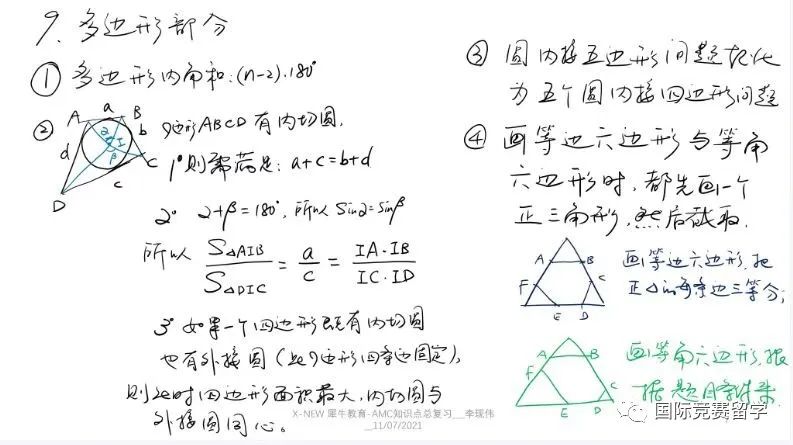 9、多边形部分
① 多边形内角和:(n-2)·180°
②
A
a
B
b
C
c
D
d
I
α
β
四边形ABCD有内切圆,
1° 则需满足: a+c=b+d
2° α+β=180°, 所以 Sinα=Sinβ
所以 S△AIB/S△DIC = a/c = IA·IB/IC·ID
3° 如果一个四边形既有内切圆
也有外接圆(此四边形四条边固定),
则此时四边形面积最大,内切圆与
外接圆同心。
③ 圆内接五边形问题转化
为五个圆内接四边形问题
④ 画等边六边形与等角
六边形时,都先画一个
正三角形,然后截取.
A
B
C
D
E
F
画等边六边形,把
正△的每条边三等分;
A
B
C
D
E
F
画等角六边形,根
据题目条件来
X-NEW 犀牛教育-AMC知识点总复习__李现伟
__11/07/2021
国际竞赛留学